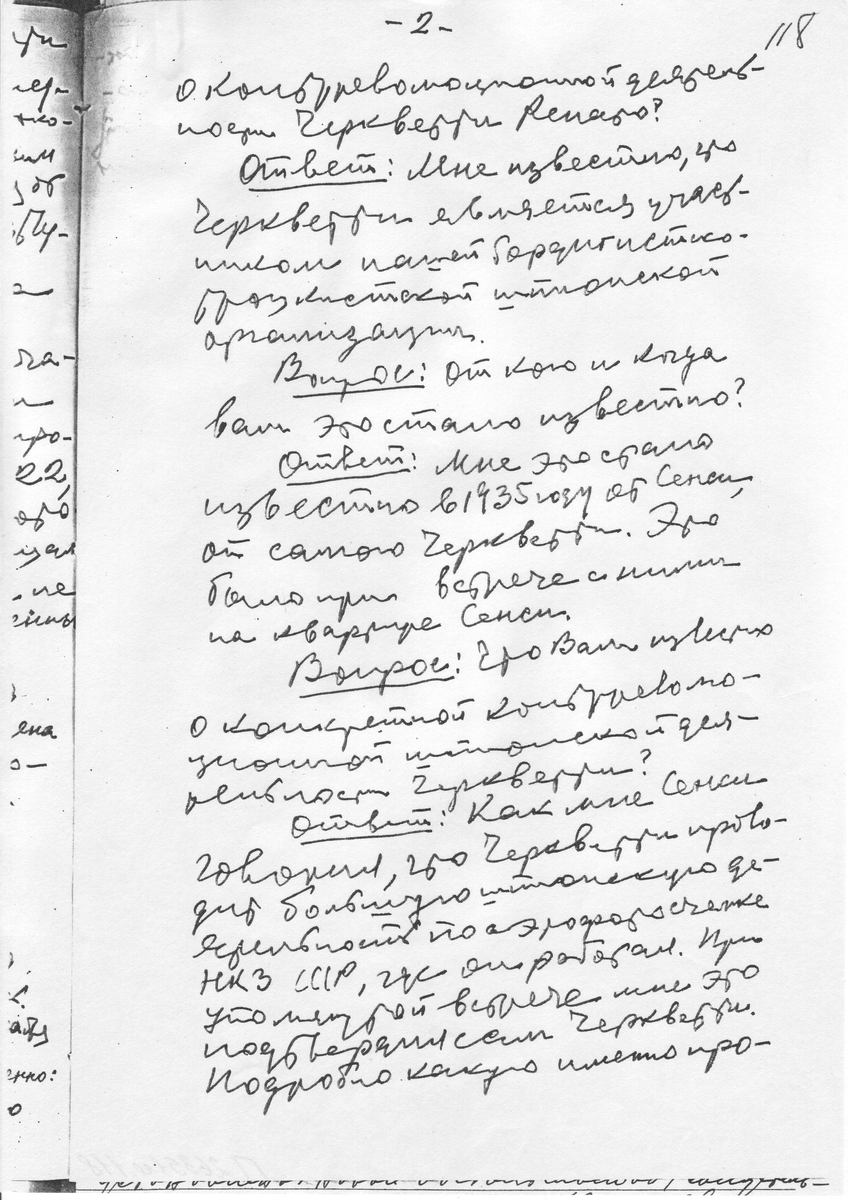 - 2 -
118
о контрреволюционной деятель-
ности Черкветти Ренато?
Ответ: Мне известно, что
Черкветти является участ-
ником нашей бордигистско-
троцкистской шпионской
организации.
Вопрос: От кого и когда
вам это стало известно?
Ответ: Мне это стало
известно в 1935 году от Сенси,
от самого Черкветти. Это
было при встрече с ними
на квартире Сенси.
Вопрос: Что Вам известно
о конкретной контрреволю-
ционной шпионской дея-
тельности Черкветти?
Ответ: Как мне Сенси
говорил, что Черкветти прово-
дит большую шпионскую де-
ятельность по аэрофотосъемке
НКЗ СССР, где он работал. При
упомянутой встрече мне это
подтвердил сам Черкветти.
Подробно какую именно про-